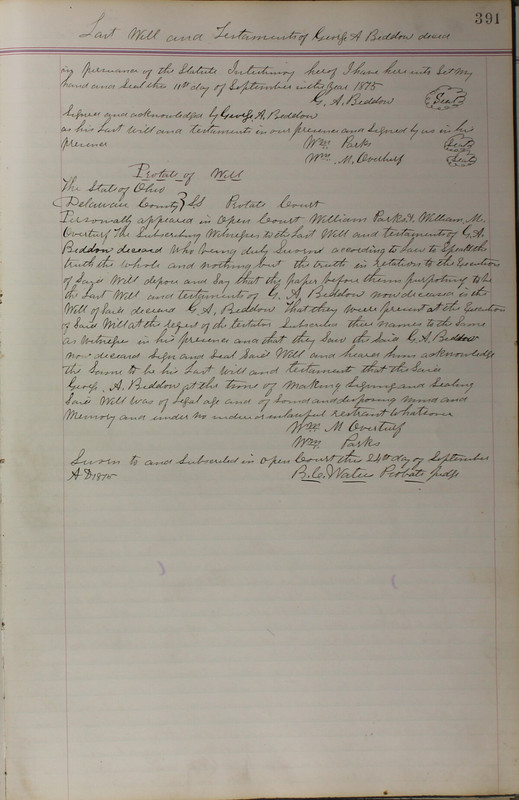 391
Last Will and Testaments of George A Beddow decsd
in permanance of the Statute In testimony herof I have here unto Set My
hand and Seal this 11th day of September in the Year 1875
G. A. Beddow (Seal)
Signed and acknowledged by George A. Beddow
as his Last Will and testaments in our presence and Signed by us in his
presence Wm Parks (Seal)
Wm. M. Overturf (Seal)
Probate of Will
The State of Ohio
Delaware County } SS Probate Court
Personally appeared in Open Court William Parks & William M.
Overturf the Subscribing Witnesses to the Last Will and testament of G.A.
Beddow deceased Who being duly Sworn according to Law to Speak the
truth the whole and nothing but the truth in relation to the Execution
of Said Will depose and Say that the paper before them purporting to be
the Last Will and testament of G. A. Beddow now deceased is the
Will of Said deceased G. A. Beddow That they were present at the Execution
of Said Will at the request of the testator Subscribed their names to the Same
as Witnesses in his presence and that they Saw the Said G. A. Beddow
now deceased Sign and Seal Said Will and heard him acknowledge
the Same to be his Last Will and testament that the Said
George A. Beddow at the time of Making Signing and Sealing
Said Will was of Legal age and of Sound and disposing mind and
Memory and under no undue or unlawful restraint Whatsoever
Wm M Overturf
Wm Parks
Sworn to and Subscribed in Open Court this 24th day of September
A D 1875 B. C. Waters Probate Judge